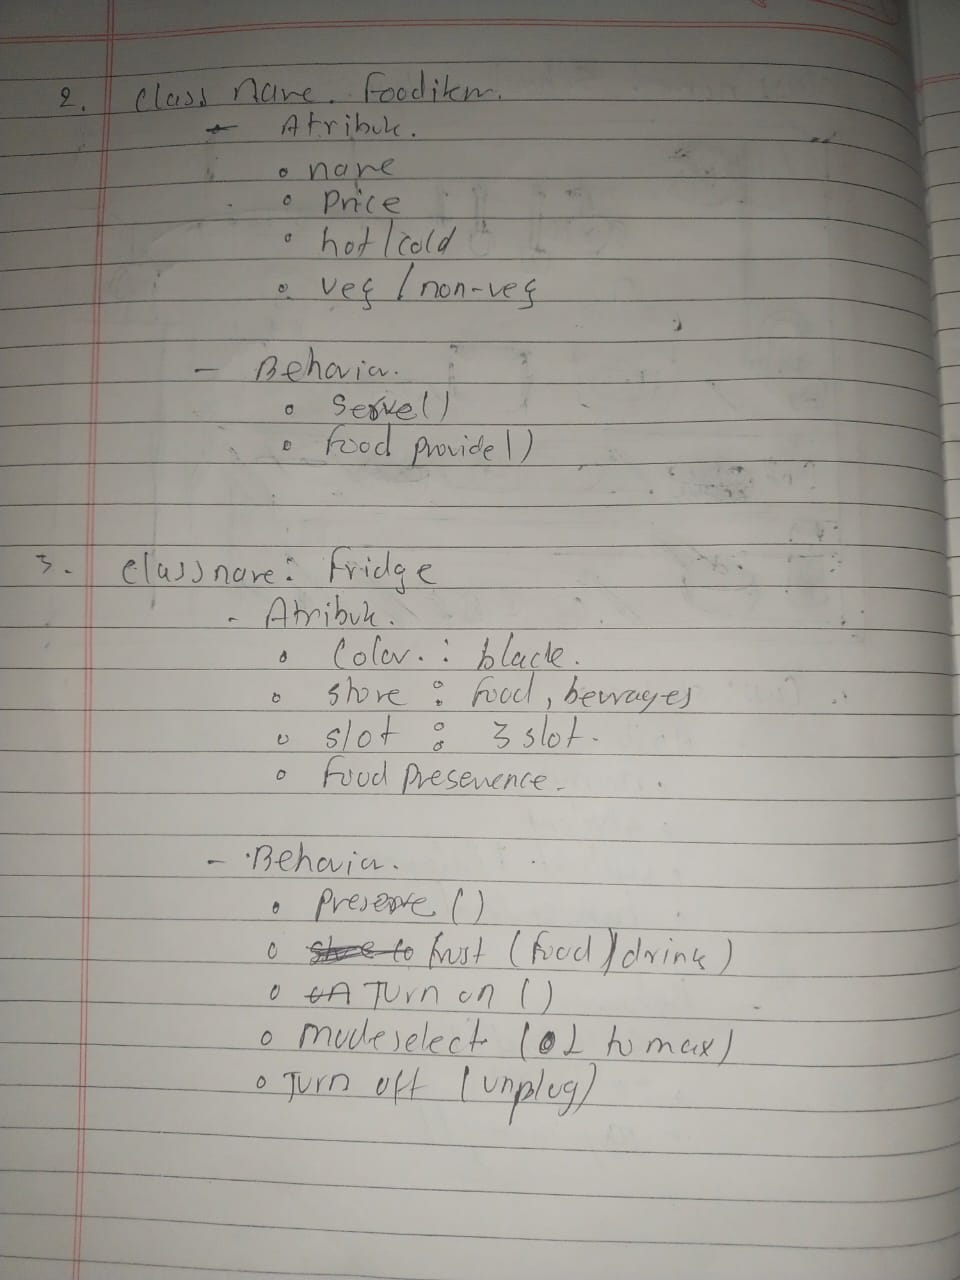 2. class Name. Fooditem.
- Atribute.
o name
o Price
o hot/cold
o veg / non-veg
- Behavior.
o Serve()
o Food provide()
3. class name: Fridge
- Atribute.
o Color. : black.
o store : food, bevrages
o slot : 3 slot.
o Food
- Behavior.
o Preserve ()
o frost (food/drink)
o Turn on ()
o mode select ( to max)
o Turn off (unplug)